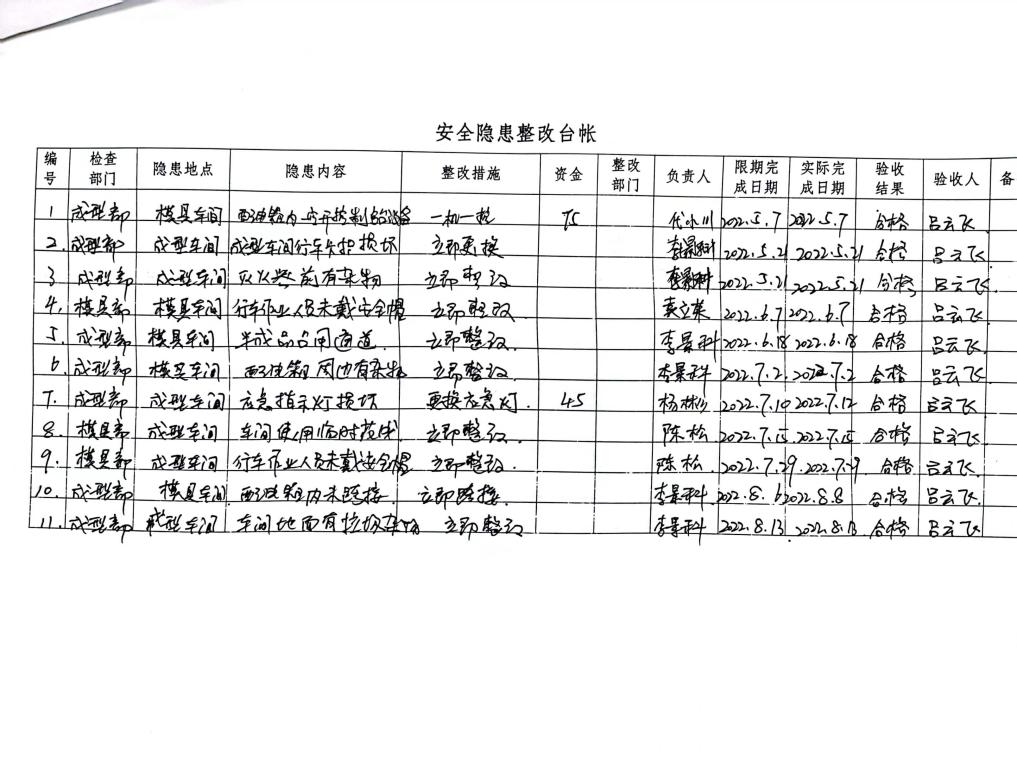 安全隐患整改台帐
编号 检查部门 隐患地点 隐患内容 整改措施 资金 整改部门 负责人 限期完成日期 实际完成日期 验收结果 验收人 备
1 成型部 模具车间 配电箱内一空开控制多设备 一机一控 75 代小川 2022.5.7 2022.5.7 合格 吕云飞
2. 成型部 成型车间 成型车间行车 损坏 立即更换 李景科 2022.5.21 2022.5.21 合格 吕云飞
3 成型部 成型车间 灭火器前有杂物 立即整改 李景科 2022.5.21 2022.5.21 合格 吕云飞
4. 模具部 模具车间 行车作业人员未戴安全帽 立即整改 袁立荣 2022.6.7 2022.6.7 合格 吕云飞
5. 成型部 模具车间 半成品占用通道. 立即整改. 李景科 2022.6.18 2022.6.18 合格 吕云飞
6. 成型部 模具车间 配电箱周边有杂物 立即整改. 李景科 2022.7.2 2022.7.2 合格 吕云飞.
7. 成型部 成型车间 应急指示灯损坏 更换应急灯. 45 杨彬 2022.7.10 2022.7.12 合格 吕云飞
8. 模具部 成型车间 车间使用临时 立即整改. 陈松 2022.7.15 2022.7.15 合格 吕云飞
9. 模具部 成型车间 行车作业人员未戴安全帽 立即整改. 陈松 2022.7.29 2022.7.29 合格 吕云飞.
10. 成型部 模具车间 配电箱内未跨接. 立即跨接. 李景科 2022.8.6 2022.8.8 合格 吕云飞.
11. 成型部 成型车间 车间地面有垃圾杂物 立即整改 李景科 2022.8.13 2022.8.13 合格 吕云飞